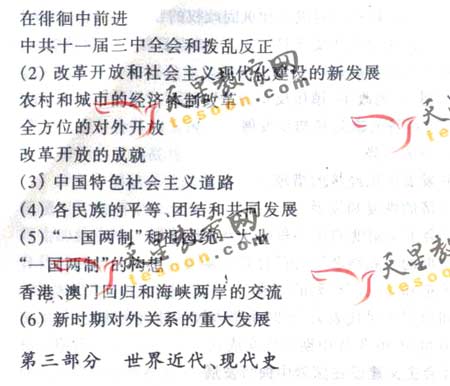 在徘徊中前进
中共十一届三中全会和拨乱反正
(2) 改革开放和社会主义现代化建设的新发展
农村和城市的经济体制改革
全方位的对外开放
改革开放的成就
(3) 中国特色社会主义道路
(4) 各民族的平等、团结和共同发展
(5) “一国两制”和祖国统一大业
“一国两制”的构想
香港、澳门回归和海峡两岸的交流
(6) 新时期对外关系的重大发展
第三部分 世界近代、现代史
天星教育网
tesoon.com
天星
tesoon
天星教
tesoon.co